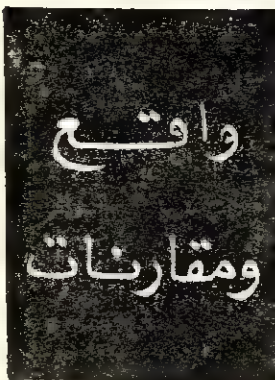 واقع
ومقارنات